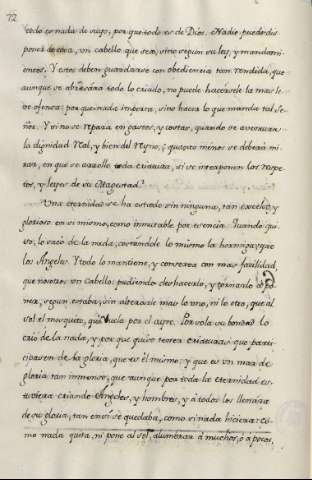 72
todo es nada de suyo, porque todo es de Dios. Nadie puede dis
poner de otra, un cabello que sea, sino segun su ley, y mandami
entos. Y estos deben guardarse con obediencia tan rendida, que
aunque se abrasara todo lo criado, no puede hacersele la mas le
ve ofensa: porque nada importa, sino hacer lo que manda tal Se
ñor. Y si no se repara en gastos, y costas, quando se
la dignidad Real, y bien del Reyno; quanto menos se deberá mi
rar, en que se toda criatura, si se atraviesan los respe
tos, y leyes de su Magestad?
Una eternidad se ha estado sin ninguna, tan excelso, y
glorioso en si mismo, como inmutable por esencia. Quando qui
so, lo sacó de la nada, costandole lo mismo la hormiga, que
los Angeles. Y todo lo mantiene, y conserva con mas facilidad
que nosotros un cabello: pudiendo deshacerlo, y tornarlo a po
ner, segun estaba; sin alterarle mas lo uno, ni lo otro, que al
sol el mosquito, que vuela por el ayre. Por sola su bondad lo
crió de la nada, y porque quiso tener criaturas que parti
cipasen de su gloria, que es él mismo; y que es un mar de
gloria tan inmenso, que aunque por toda la eternidad es
tuviera criando Angeles, y hombres, y á todos los llenara
de su gloria, tan en sí se quedaba, como si nada hiciera: co
mo nada quita, ni pone al sol, alumbrar á muchos, ó á pocos,